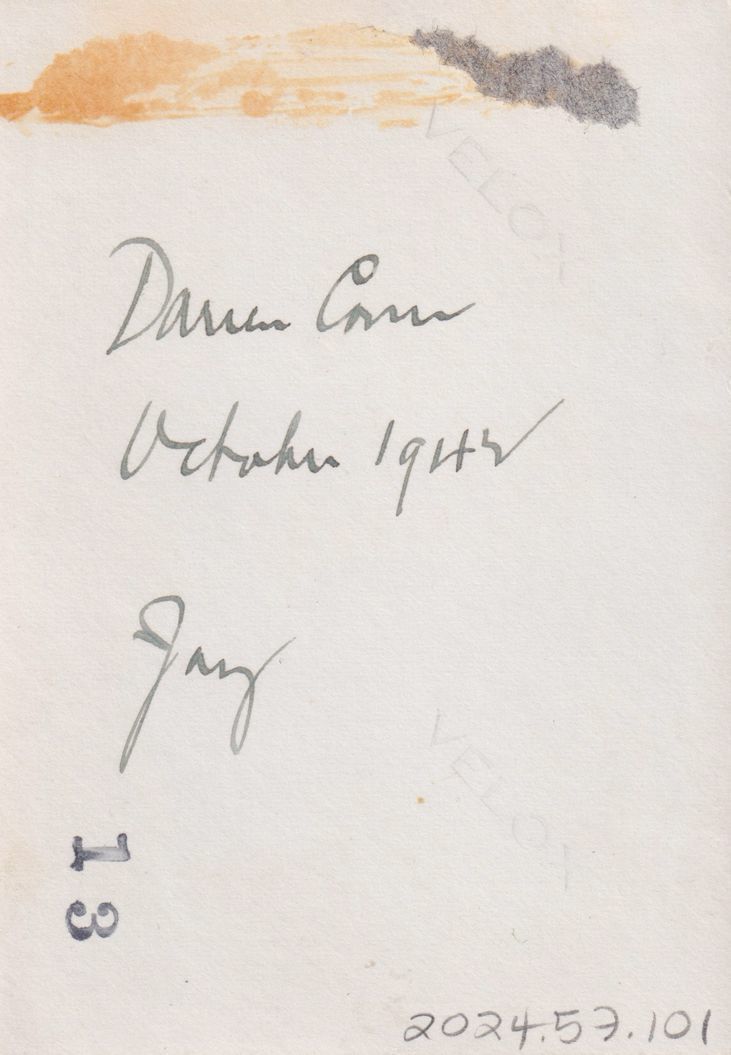 VELOX
Darien Conn
October 1942
Jay
VELOX
13
2024.57.101